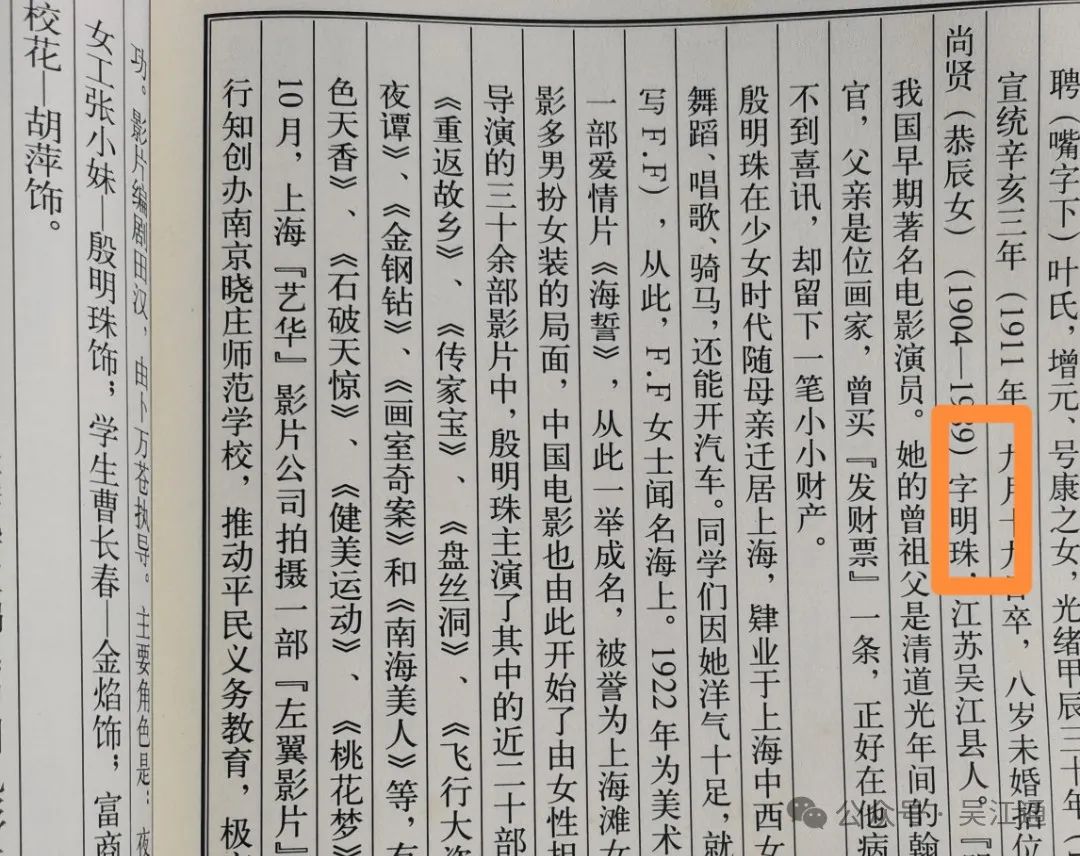 聘（嘴字下）叶氏，增元、号康之女，光绪甲辰三十年
宣统辛亥三年（1911年 九月十九日卒，八岁未婚招位
尚贤（恭辰女）（1904—1989）字明珠，江苏吴江县人。『
我国早期著名电影演员。她的曾祖父是清道光年间的翰
官，父亲是位画家，曾买『发财票』一条，正好在他病
不到喜讯，却留下一笔小小财产。
殷明珠在少女时代随母亲迁居上海，肄业于上海中西女
舞蹈、唱歌、骑马，还能开汽车。同学们因她洋气十足，就
写F.F），从此，F.F女士闻名海上。1922年为美术
一部爱情片《海誓》，从此一举成名，被誉为上海滩女
影多男扮女装的局面，中国电影也由此开始了由女性担
导演的三十余部影片中，殷明珠主演了其中的近二十部
《重返故乡》、《传家宝》、《盘丝洞》、《飞行大盗
夜谭》、《金钢钻》、《画室奇案》和《南海美人》等，有
色天香》、《石破天惊》、《健美运动》、《桃花梦》
10月，上海『艺华』影片公司拍摄一部『左翼影片』
行知创办南京晓庄师范学校，推动平民义务教育，极
功。影片编剧田汉，由卜万苍执导。主要角色是：夜
女工张小妹 殷明珠饰；学生曹长春—金焰饰；富商
校花—胡萍饰。
公众号·吴江通